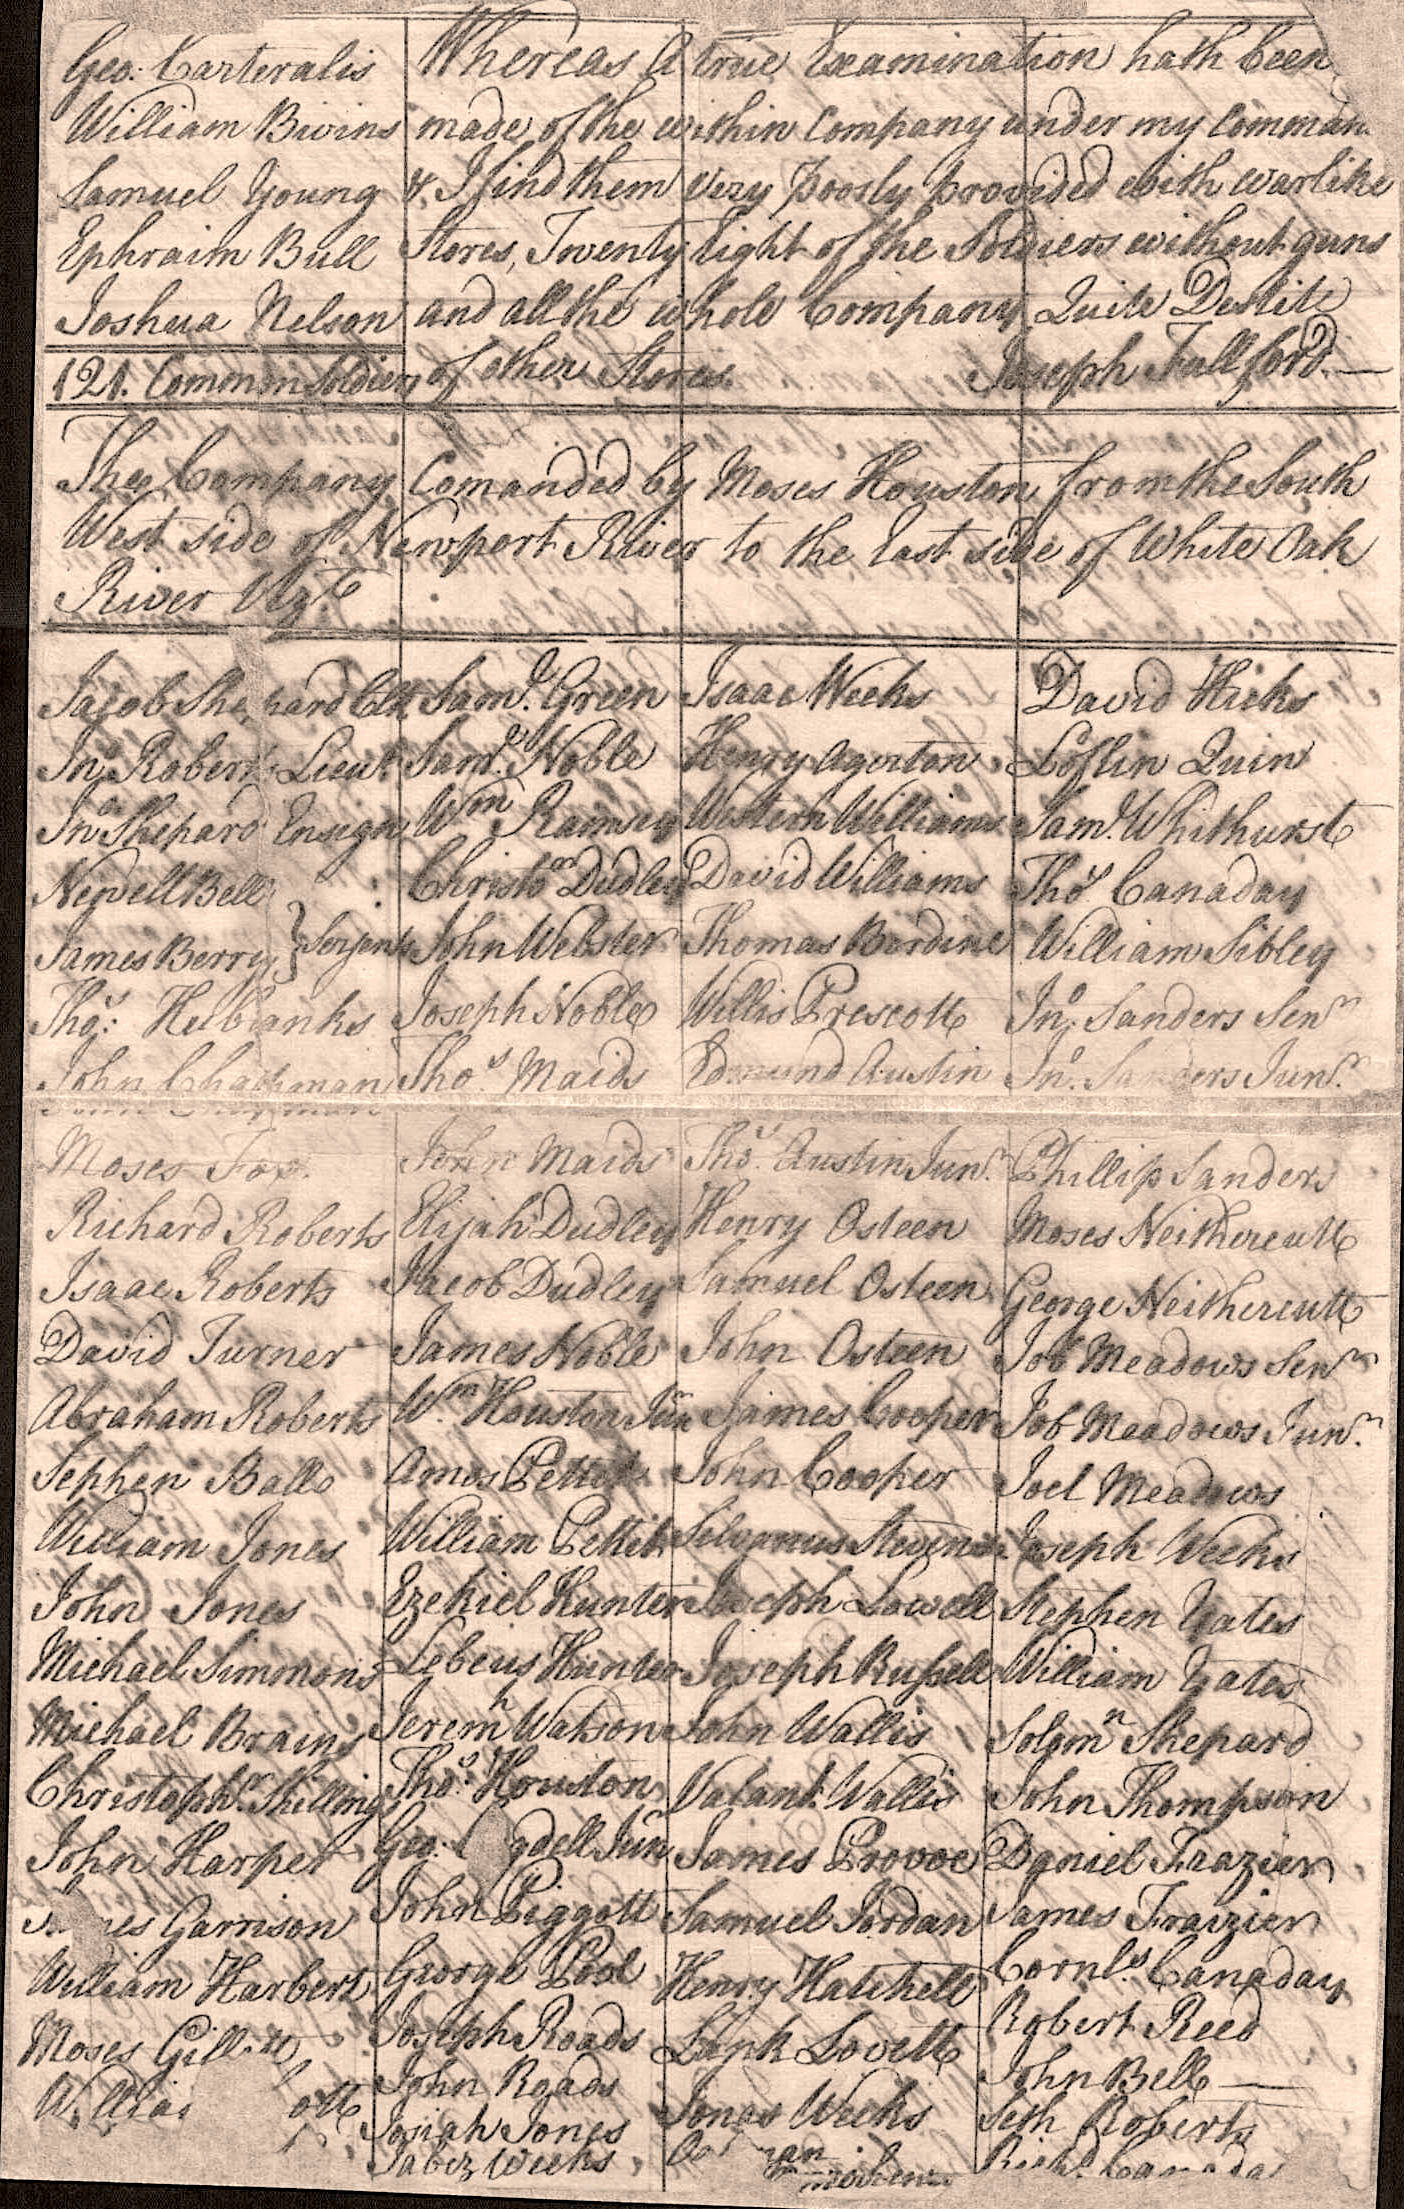 Geo. Carteralis
William Bivins
Samuel Young
Ephraim Bull
Joshua Nelson
121. Common Soldiers
Whereas A true Examination hath been
made of the within Company under my Comman
& I find them very poorly provided with warlike
Stores, Twenty Eight of the Soldiers without guns
and all the whole Company Quite Destite
of other Stores. Joseph Fullford.
The Company Comanded by Moses Houston from the South
West side of Newport River to the East side of White Oak
River Vizt
Jacob Shephard Clk
Jno Roberts Lieut
Jno Shepard Ensign
Newell Bell
James Berry } Serjents
Thos. Hubbanks
John Chapman
Moses Fox.
Richard Roberts
Isaac Roberts
David Turner
Abraham Roberts
Sephen Balls
William Jones
John Jones
Michael Simmons
Michael Brains
Christophr. Shilling
John Harper
Garrison
William Harbert
Moses
Saml. Green
Saml. Noble
Wm Ramsey
Christon Dudley
John Webster
Joseph Noble
Thos. Maids
John Maids
Elijah Dudley
Jacob Dudley
James Noble
Wm Houston Jun
Amos Pettit
William Pettit
Ezekiel Hunter
Lebeus Hunter
Jeremh Watson
Thos. Houston
Geo. Jun
John Piggott
George Pool
Joseph Roads
John Roads
Josiah Jones
Jabez Weeks
Isaac Weeks
Henry Agerton
Western Williams
David Williams
Thomas Bordine
Willis Prescott
Edmund Austin
Thos. Austin Junr.
Henry Osteen
Samuel Osteen
John Osteen
James Cooper
John Cooper
Silvanus Stevens
Joseph Lowell
Joseph Russell
John Wallis
Valant. Wallis
James Provoe
Samuel Jordan
Henry Hatchell
Lovett
Jonas Weeks
David Hicks
Loflin Quin
Saml. Whithurst
Thos. Canaday
William Sibley
Jno. Sanders Senr
Jno. Sanders Junr.
Phillip Sanders
Moses Neithercutt
George Neithercutt
Job Meadows Senr
Job Meadows Junr.
Joel Meadows
Joseph Weeks
Stephen Yates
William Yates
Solomn Shepard
John Thompson
Daniel Frazier
James Fraizier
Cornls. Canaday
Robert Reed
John Bell
Seth Roberts
Richd. Canada